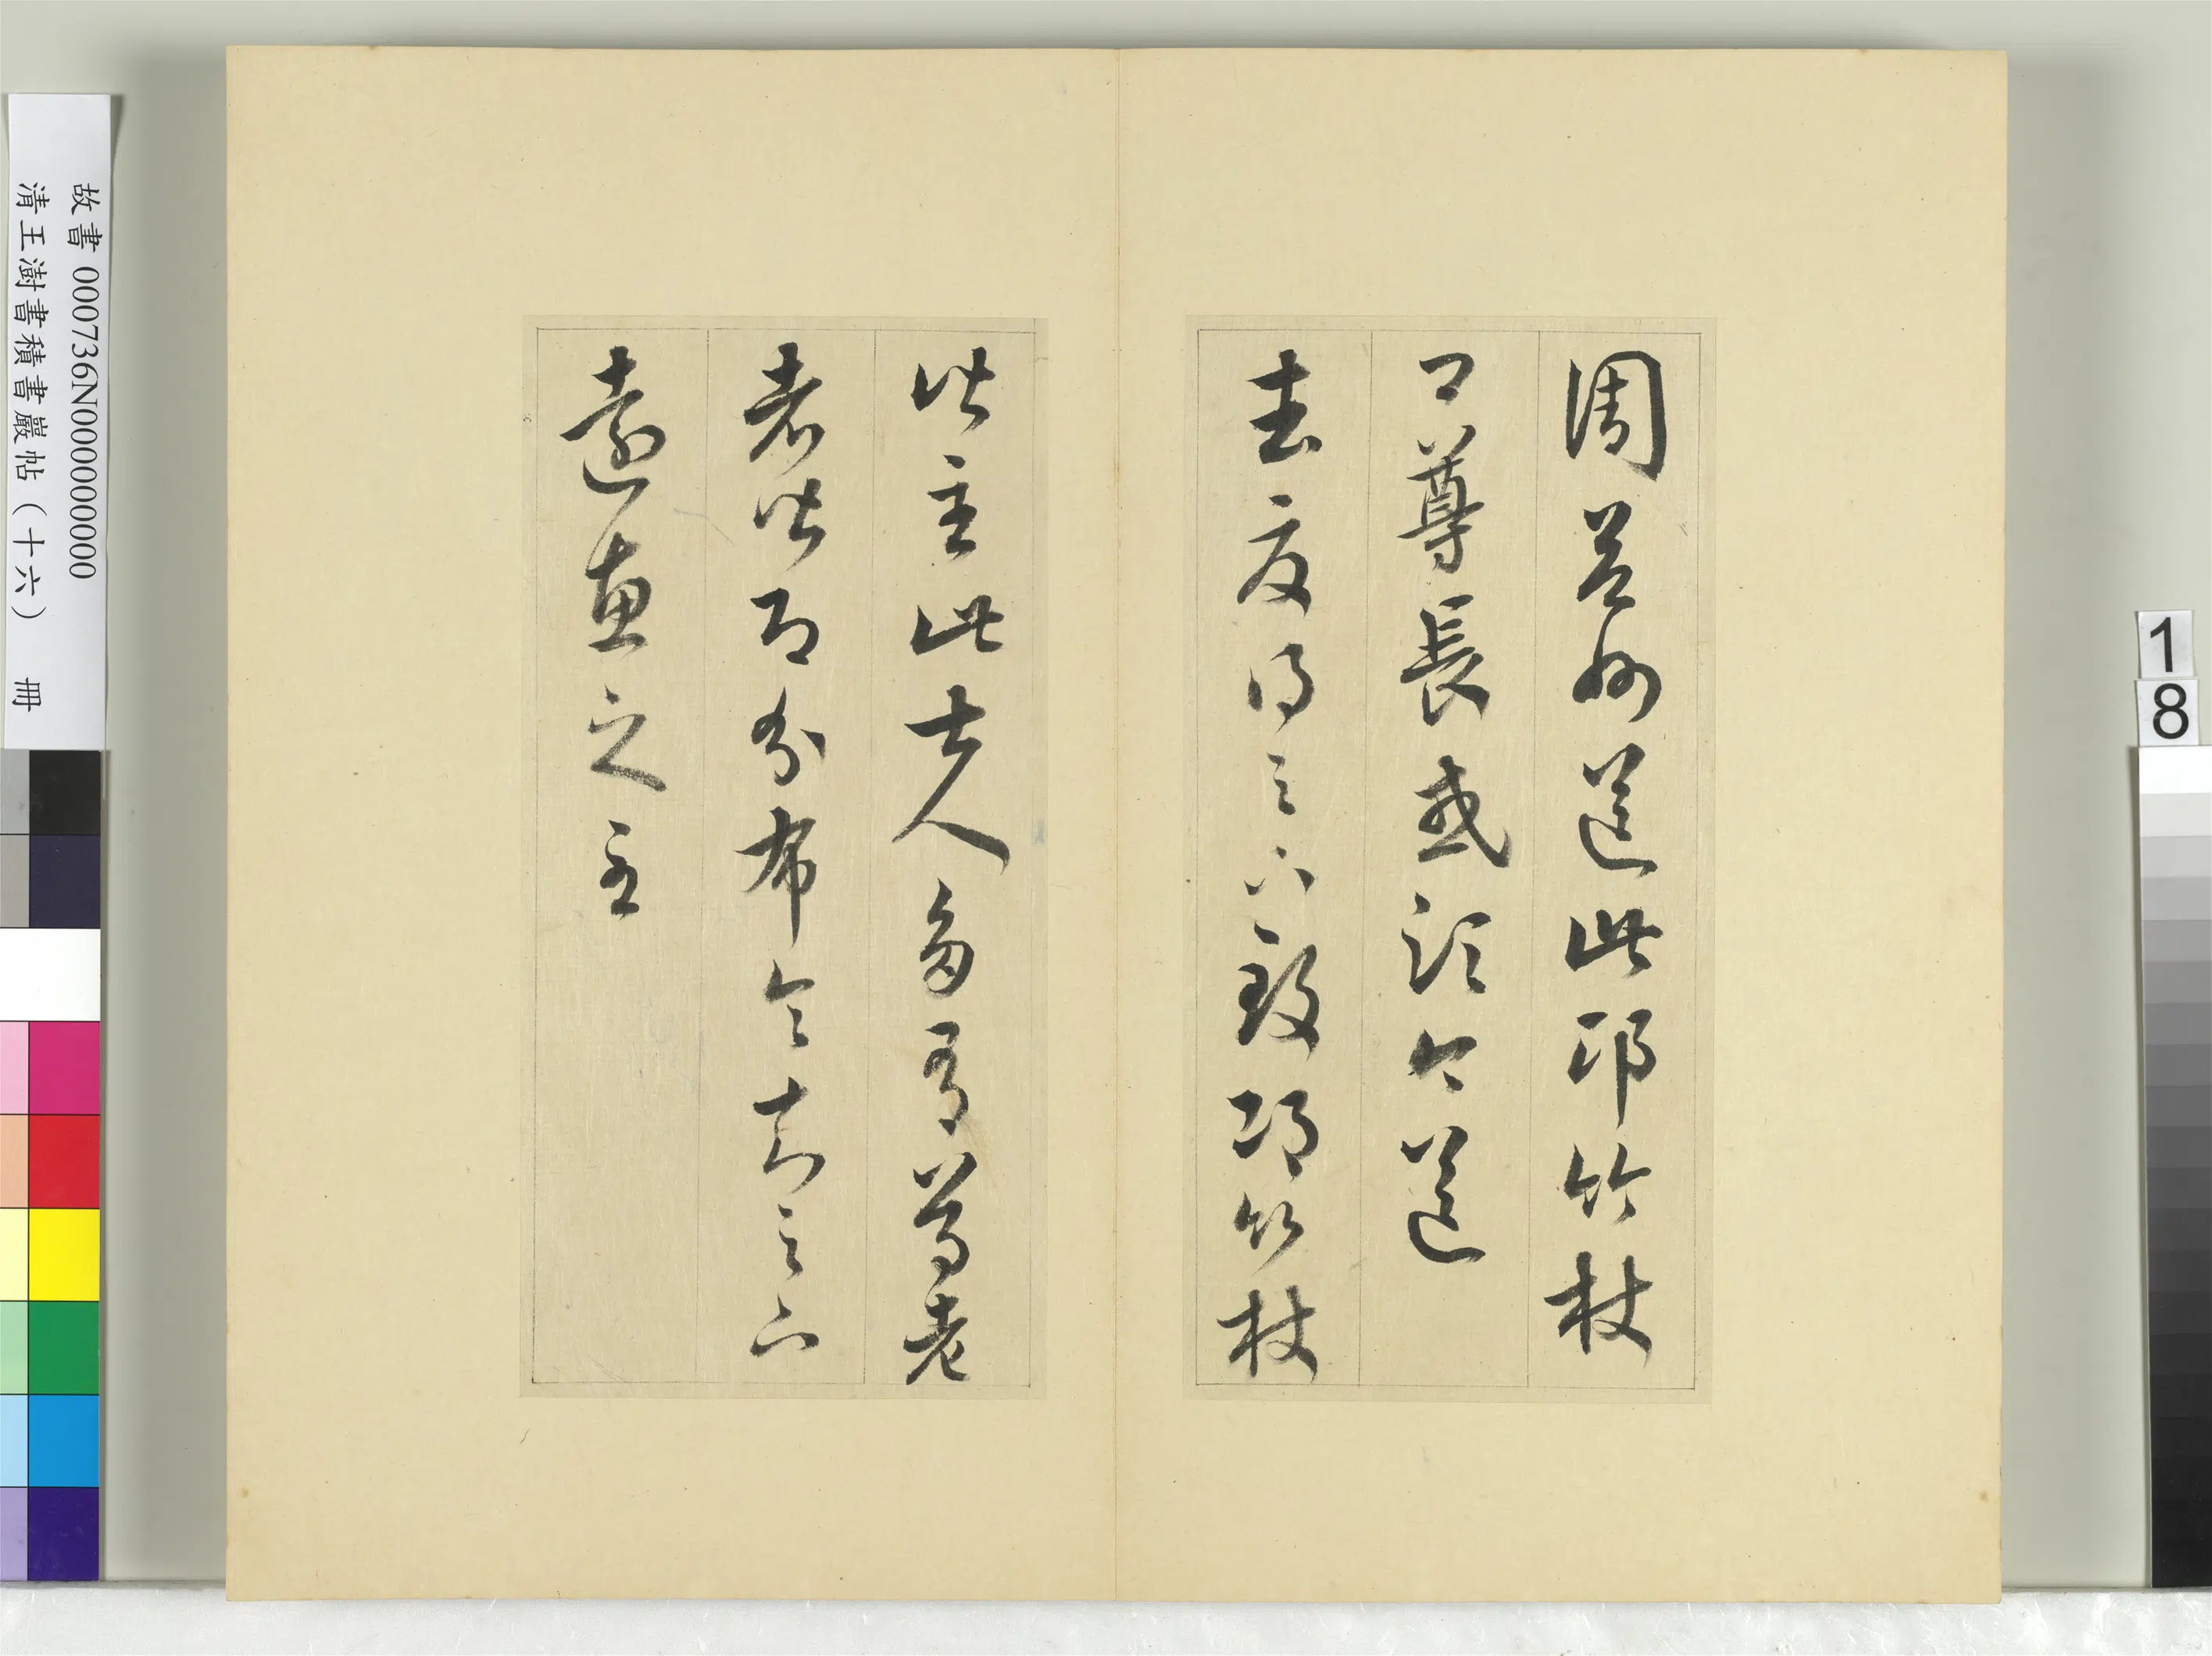 周益州送此邛竹杖
卿尊長或須今送
去夏得足下致邛竹杖
皆至此士人多有尊老
者皆即分布令知足下
遠惠之至
故書 000736N000000000
清王澍書積書巖帖(十六) 冊
1
8